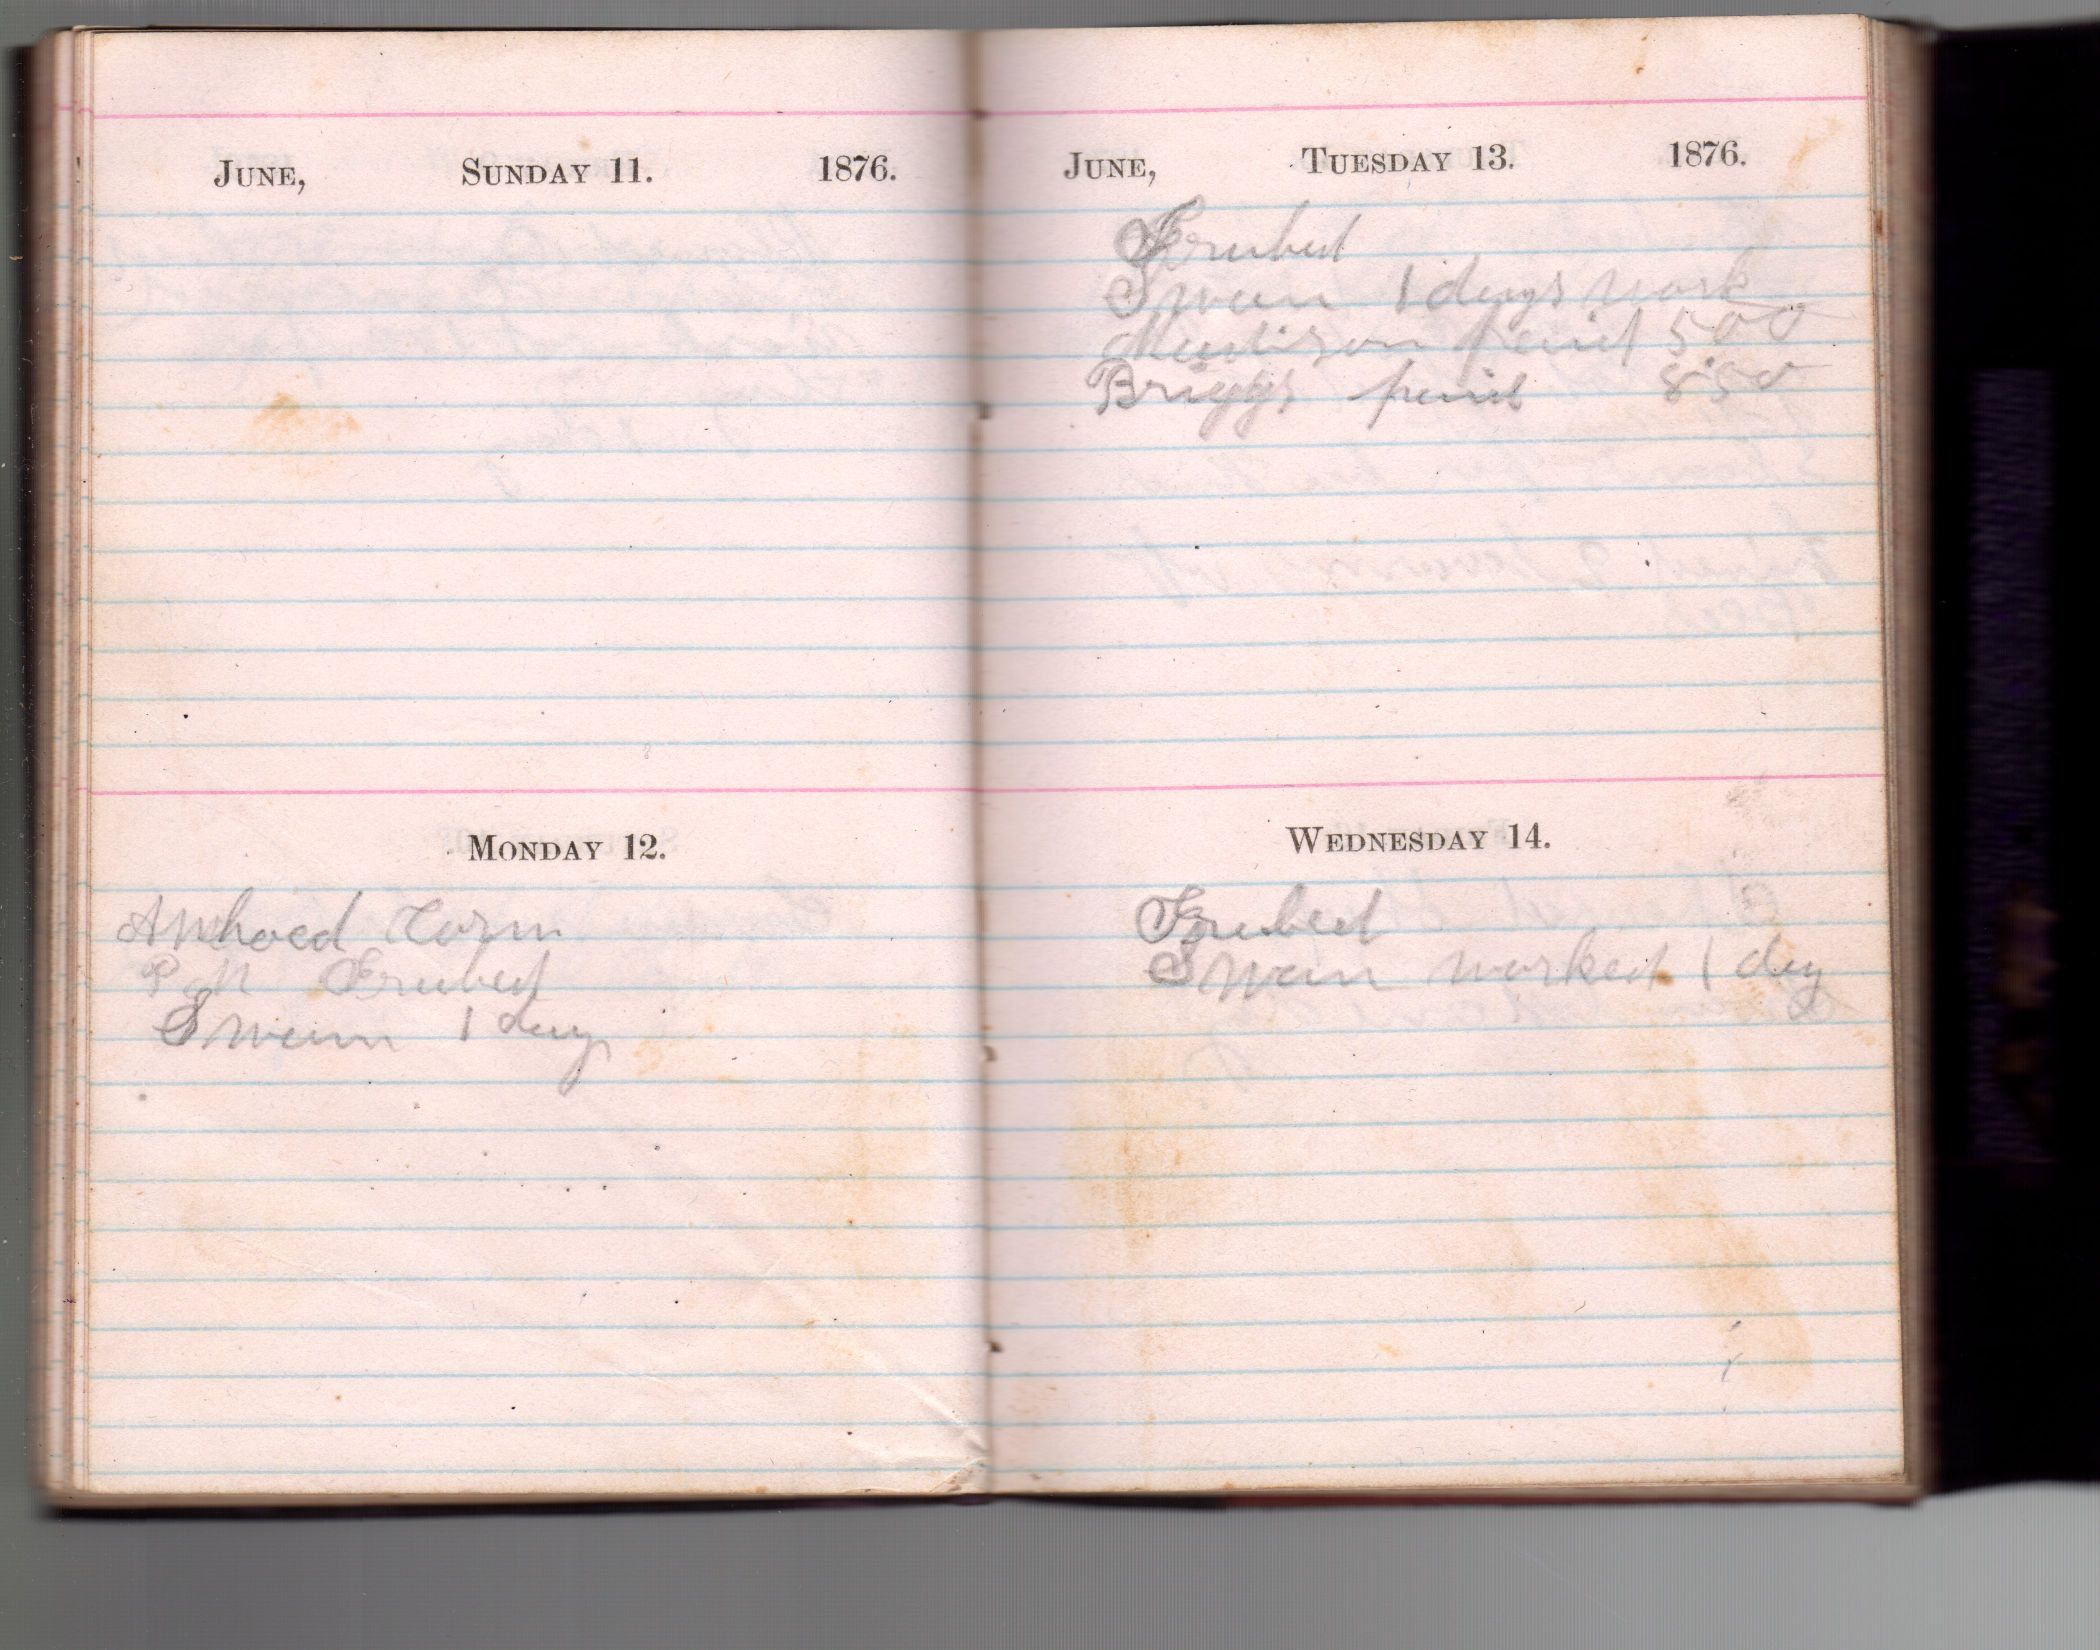 June, Sunday 11. 1876.
Monday 12.
A M hoed Corn
P M Grubed
Swan 1 day
June, Tuesday 13. 1876.
Grubed
Swan 1 days work
Maddison paid 500
Briggs paid 850
Wednesday 14.
Grubed
Swan worked 1 day